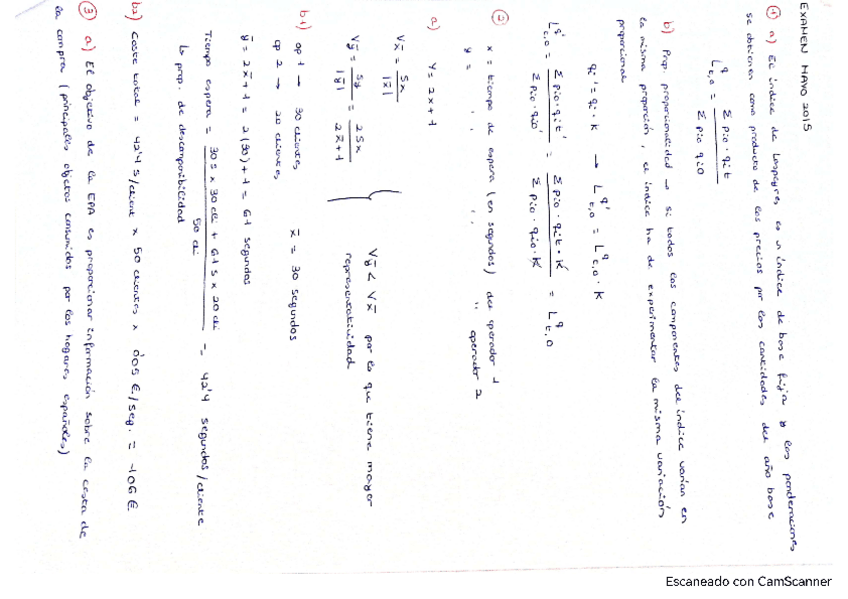 EXAMEN MAYO 2015
① a) El índice de Laspeyres, es un índice de base fija y los ponderaciones
se obtienen como producto de los precios por las cantidades del año base
L^q_{t,0} = Σ pio · qit / Σ pio · qi0
b) Prop. proporcionalidad → si todos los componentes del índice varían en
la misma proporción, el índice ha de experimentar la misma variación
proporcional
qi' = qi · k → L^{q'}_{t,0} = L^q_{t,0} · k
L^{q'}_{t,0} = Σ pio · qit' / Σ pio · qio' = Σ pio · qit · k / Σ pio · qio · k = L^q_{t,0}
② x = tiempo de espera (en segundos) del operador 1
y = " " " " operador 2
a) y = 2x + 1
V_x̄ = Sx / |x̄|
V_ȳ = Sy / |ȳ| = 2Sx / 2x̄ + 1
V_ȳ < V_x̄ por lo que tiene mayor
representatividad
b1) op 1 → 30 clientes
op 2 → 20 clientes
x̄ = 30 segundos
ȳ = 2x̄ + 1 = 2(30) + 1 = 61 segundos
Tiempo espera = 30 s x 30 cli + 61 s x 20 cli / 50 cli = 42'4 segundos/cliente
↳ prop. de descomponibilidad
b2) Coste total = 42'4 s/client x 50 clientes x 0'05 €/seg. = 106 €
③ a) El objetivo de la EPA es proporcionar información sobre la cesta de
la compra (principales objetos consumidos por los hogares españoles)
Escaneado con CamScanner